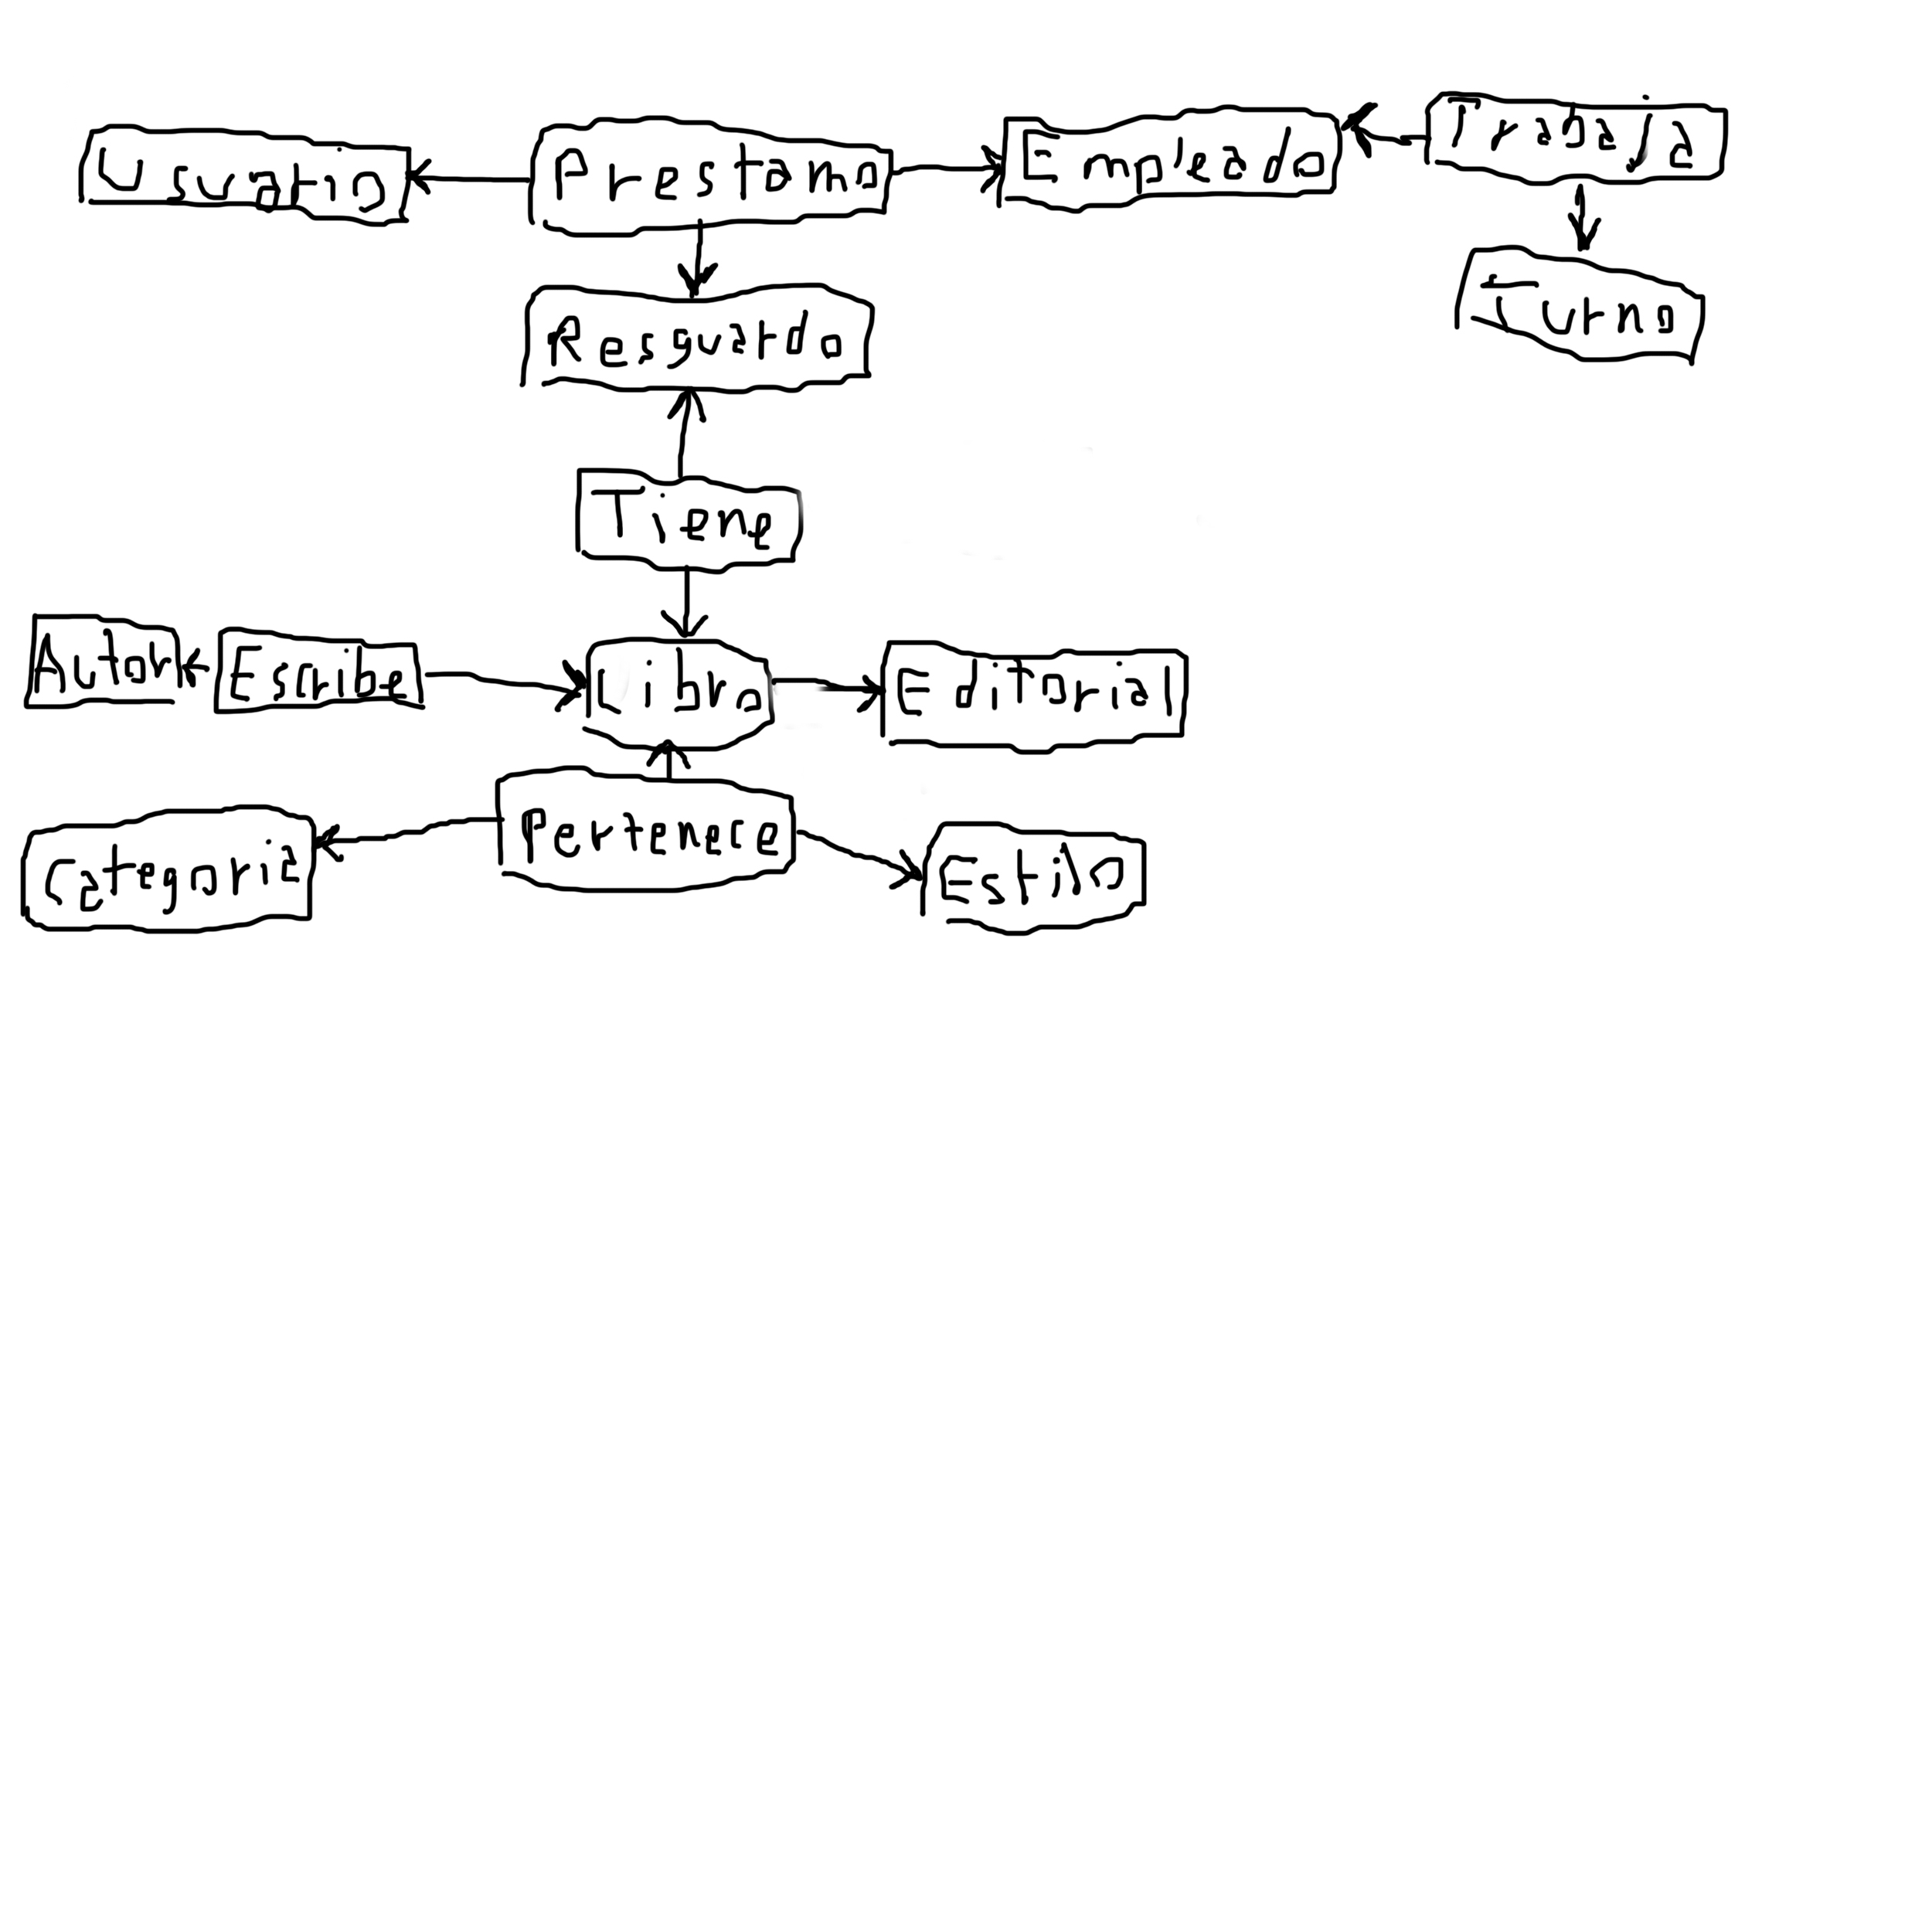 Usuario
Prestamo
Empleado
Trabaja
Turno
Resguardo
Tiene
Autor
Escribe
Libro
Editorial
Categoria
Pertenece
Estilo